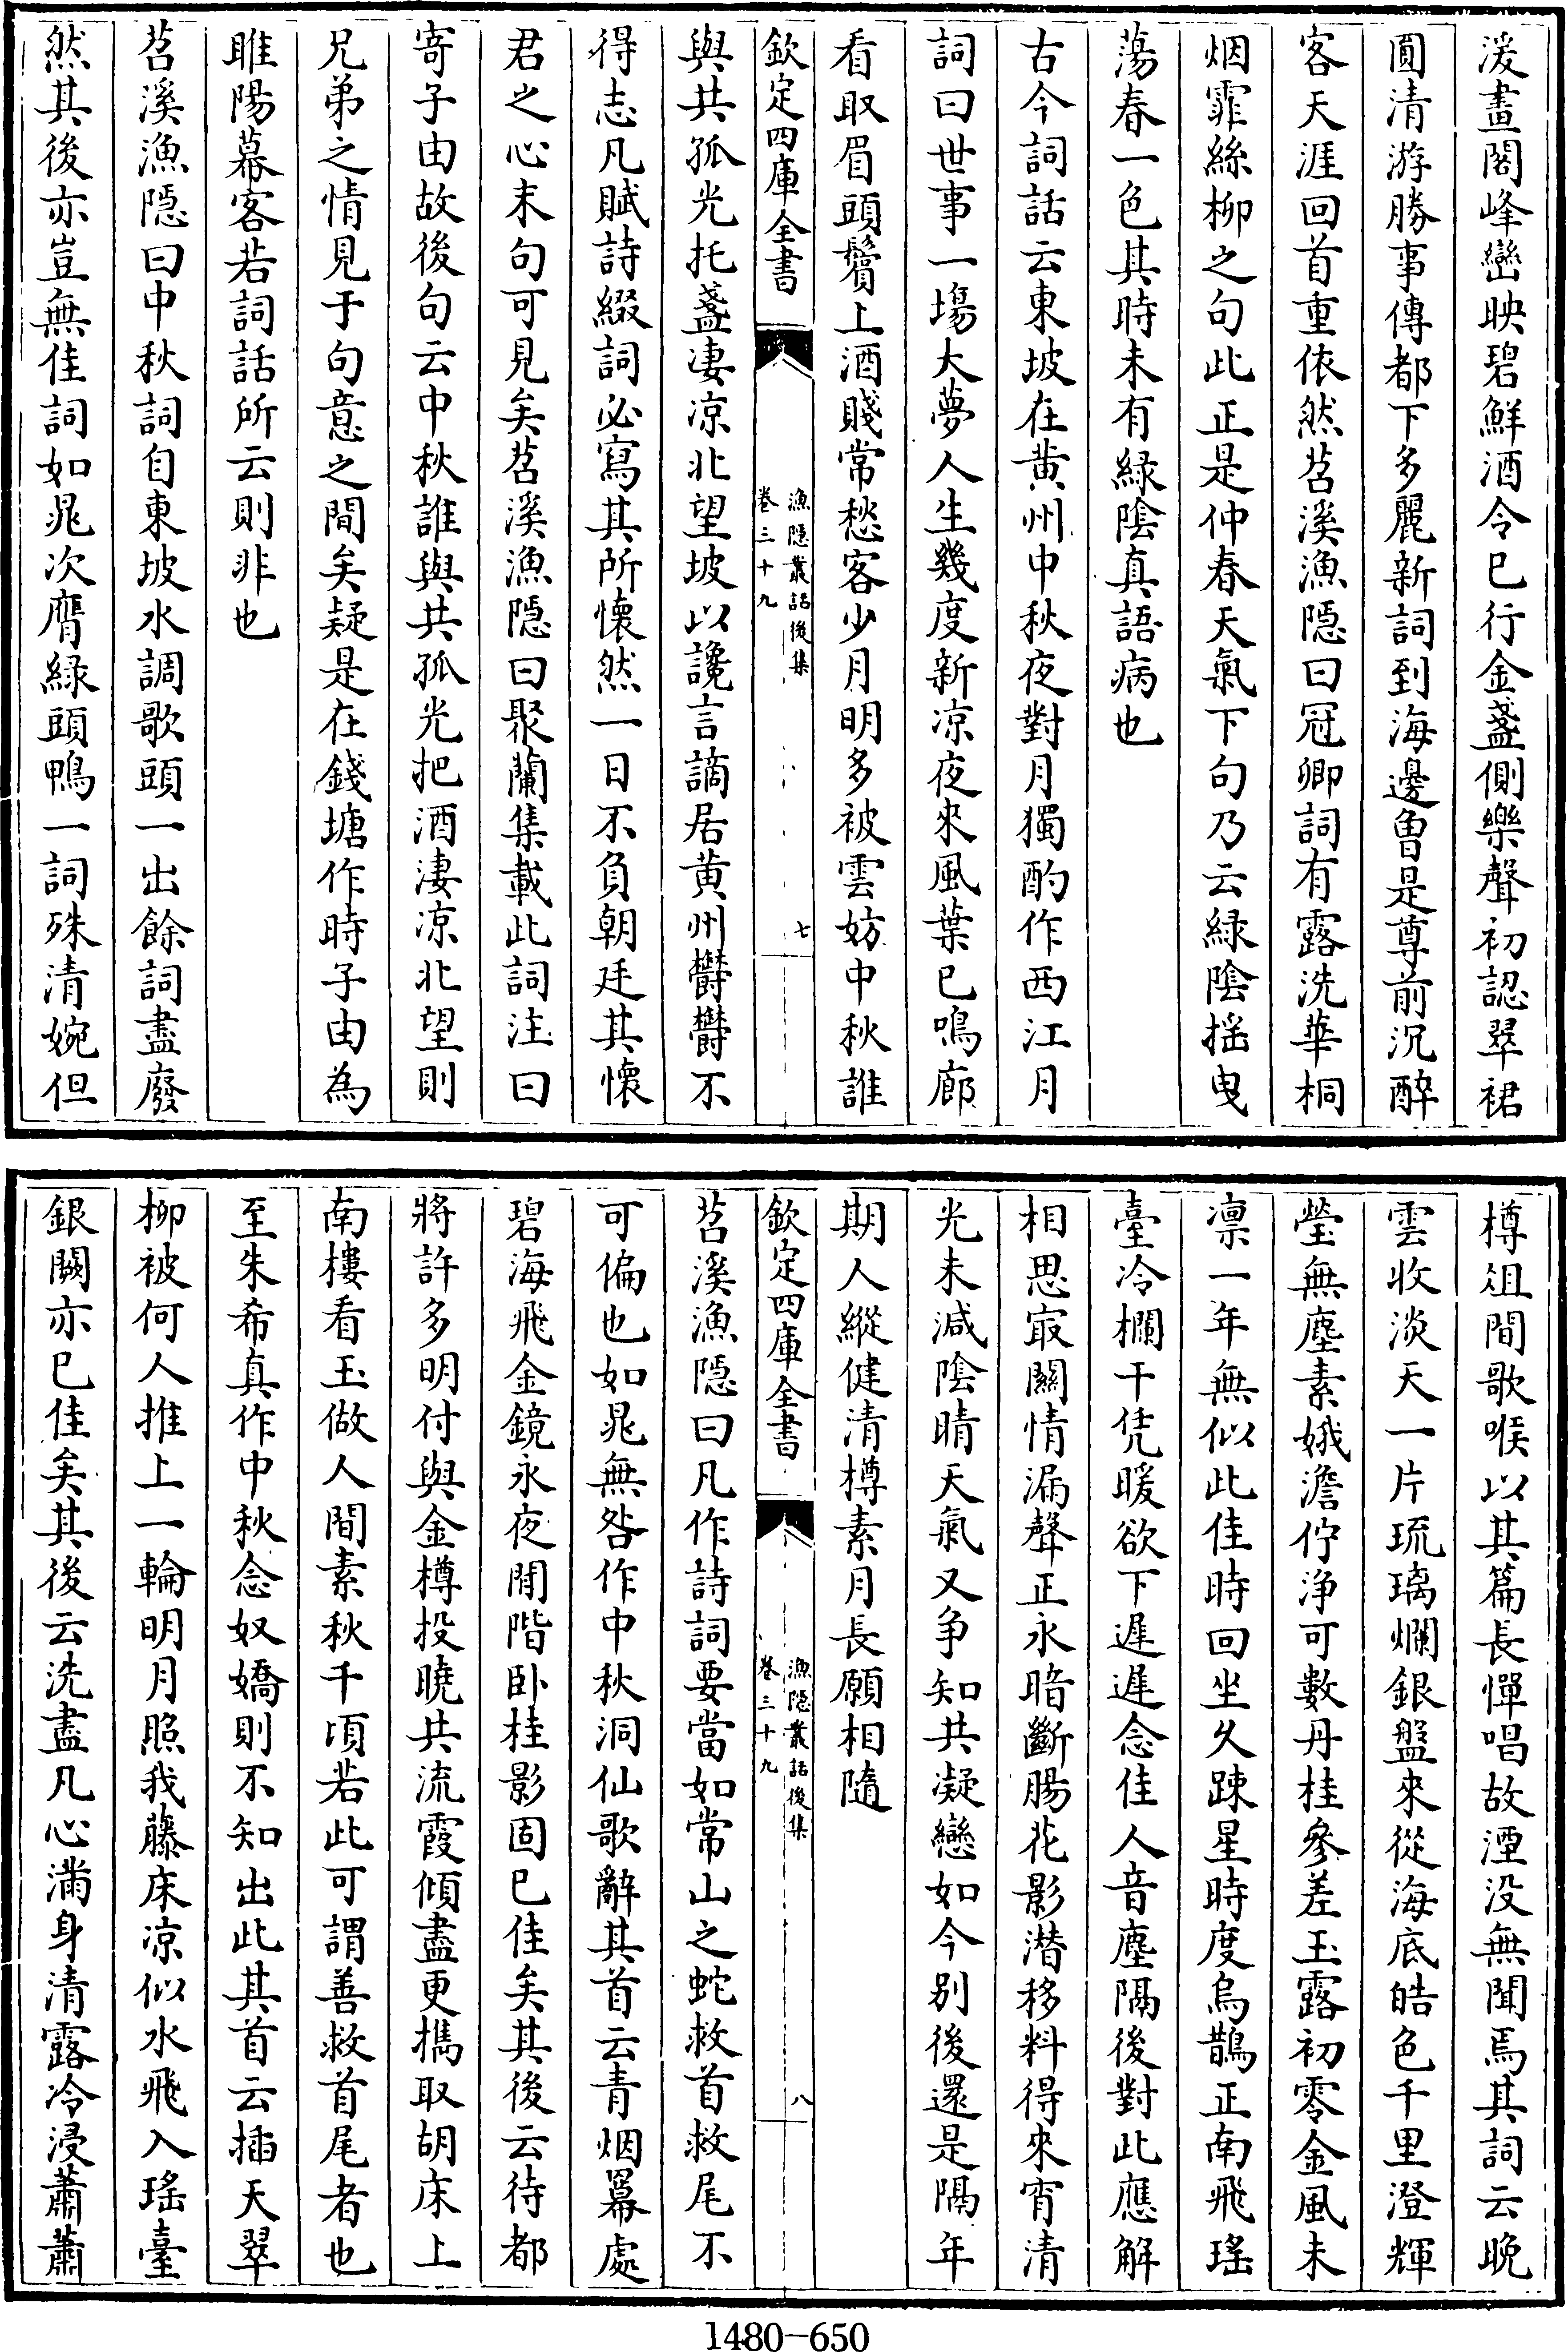 湲畫閣峰巒映碧鮮酒令已行金盞側樂聲初認翠裙
圓清游勝事傳都下多麗新詞到海邊曾是尊前沉醉
客天涯回首重依然苕溪漁隠曰冠卿詞有露洗華桐
烟霏絲柳之句此正是仲春天氣下句乃云緑陰揺曳
蕩春一色其時未有緑陰真語病也
古今詞話云東坡在黄州中秋夜對月獨酌作西江月
詞曰世事一場大夢人生幾度新凉夜來風葉已鳴廊
看取眉頭鬢上酒賤常愁客少月明多被雲妨中秋誰
欽定四庫全書
漁隠叢話後集
卷三十九
七
與共孤光托盞淒凉北望坡以讒言謫居黄州欝欝不
得志凡賦詩綴詞必寫其所懷然一日不負朝廷其懷
君之心末句可見矣苕溪漁隠曰聚蘭集載此詞注曰
寄子由故後句云中秋誰與共孤光把酒淒凉北望則
兄弟之情見于句意之間矣疑是在錢塘作時子由為
睢陽幕客若詞話所云則非也
苕溪漁隠曰中秋詞自東坡水調歌頭一出餘詞盡廢
然其後亦豈無佳詞如晁次膺緑頭鴨一詞殊清婉但
樽俎間歌喉以其篇長憚唱故湮没無聞焉其詞云晚
雲收淡天一片琉璃爛銀盤來從海底皓色千里澄輝
瑩無塵素娥澹佇浄可數丹桂參差玉露初零金風未
凛一年無似此佳時回坐久踈星時度烏鵲正南飛瑤
臺冷欄干凭暖欲下遲遲念佳人音塵隔後對此應解
相思㝡關情漏聲正永暗斷腸花影潜移料得來宵清
光未減陰晴天氣又争知共凝戀如今别後還是隔年
期人縱健清樽素月長願相隨
欽定四庫全書
漁隠叢話後集
卷三十九
八
苕溪漁隠曰凡作詩詞要當如常山之蛇救首救尾不
可偏也如晁無咎作中秋洞仙歌辭其首云青烟羃處
碧海飛金鏡永夜閒階卧桂影固已佳矣其後云待都
將許多明付與金樽投曉共流霞傾盡更擕取胡床上
南樓看玉做人間素秋千頃若此可謂善救首尾者也
至朱希真作中秋念奴嬌則不知出此其首云插天翠
柳被何人推上一輪明月照我藤床凉似水飛入瑤臺
銀闕亦已佳矣其後云洗盡凡心滿身清露冷浸蕭蕭
1480-650